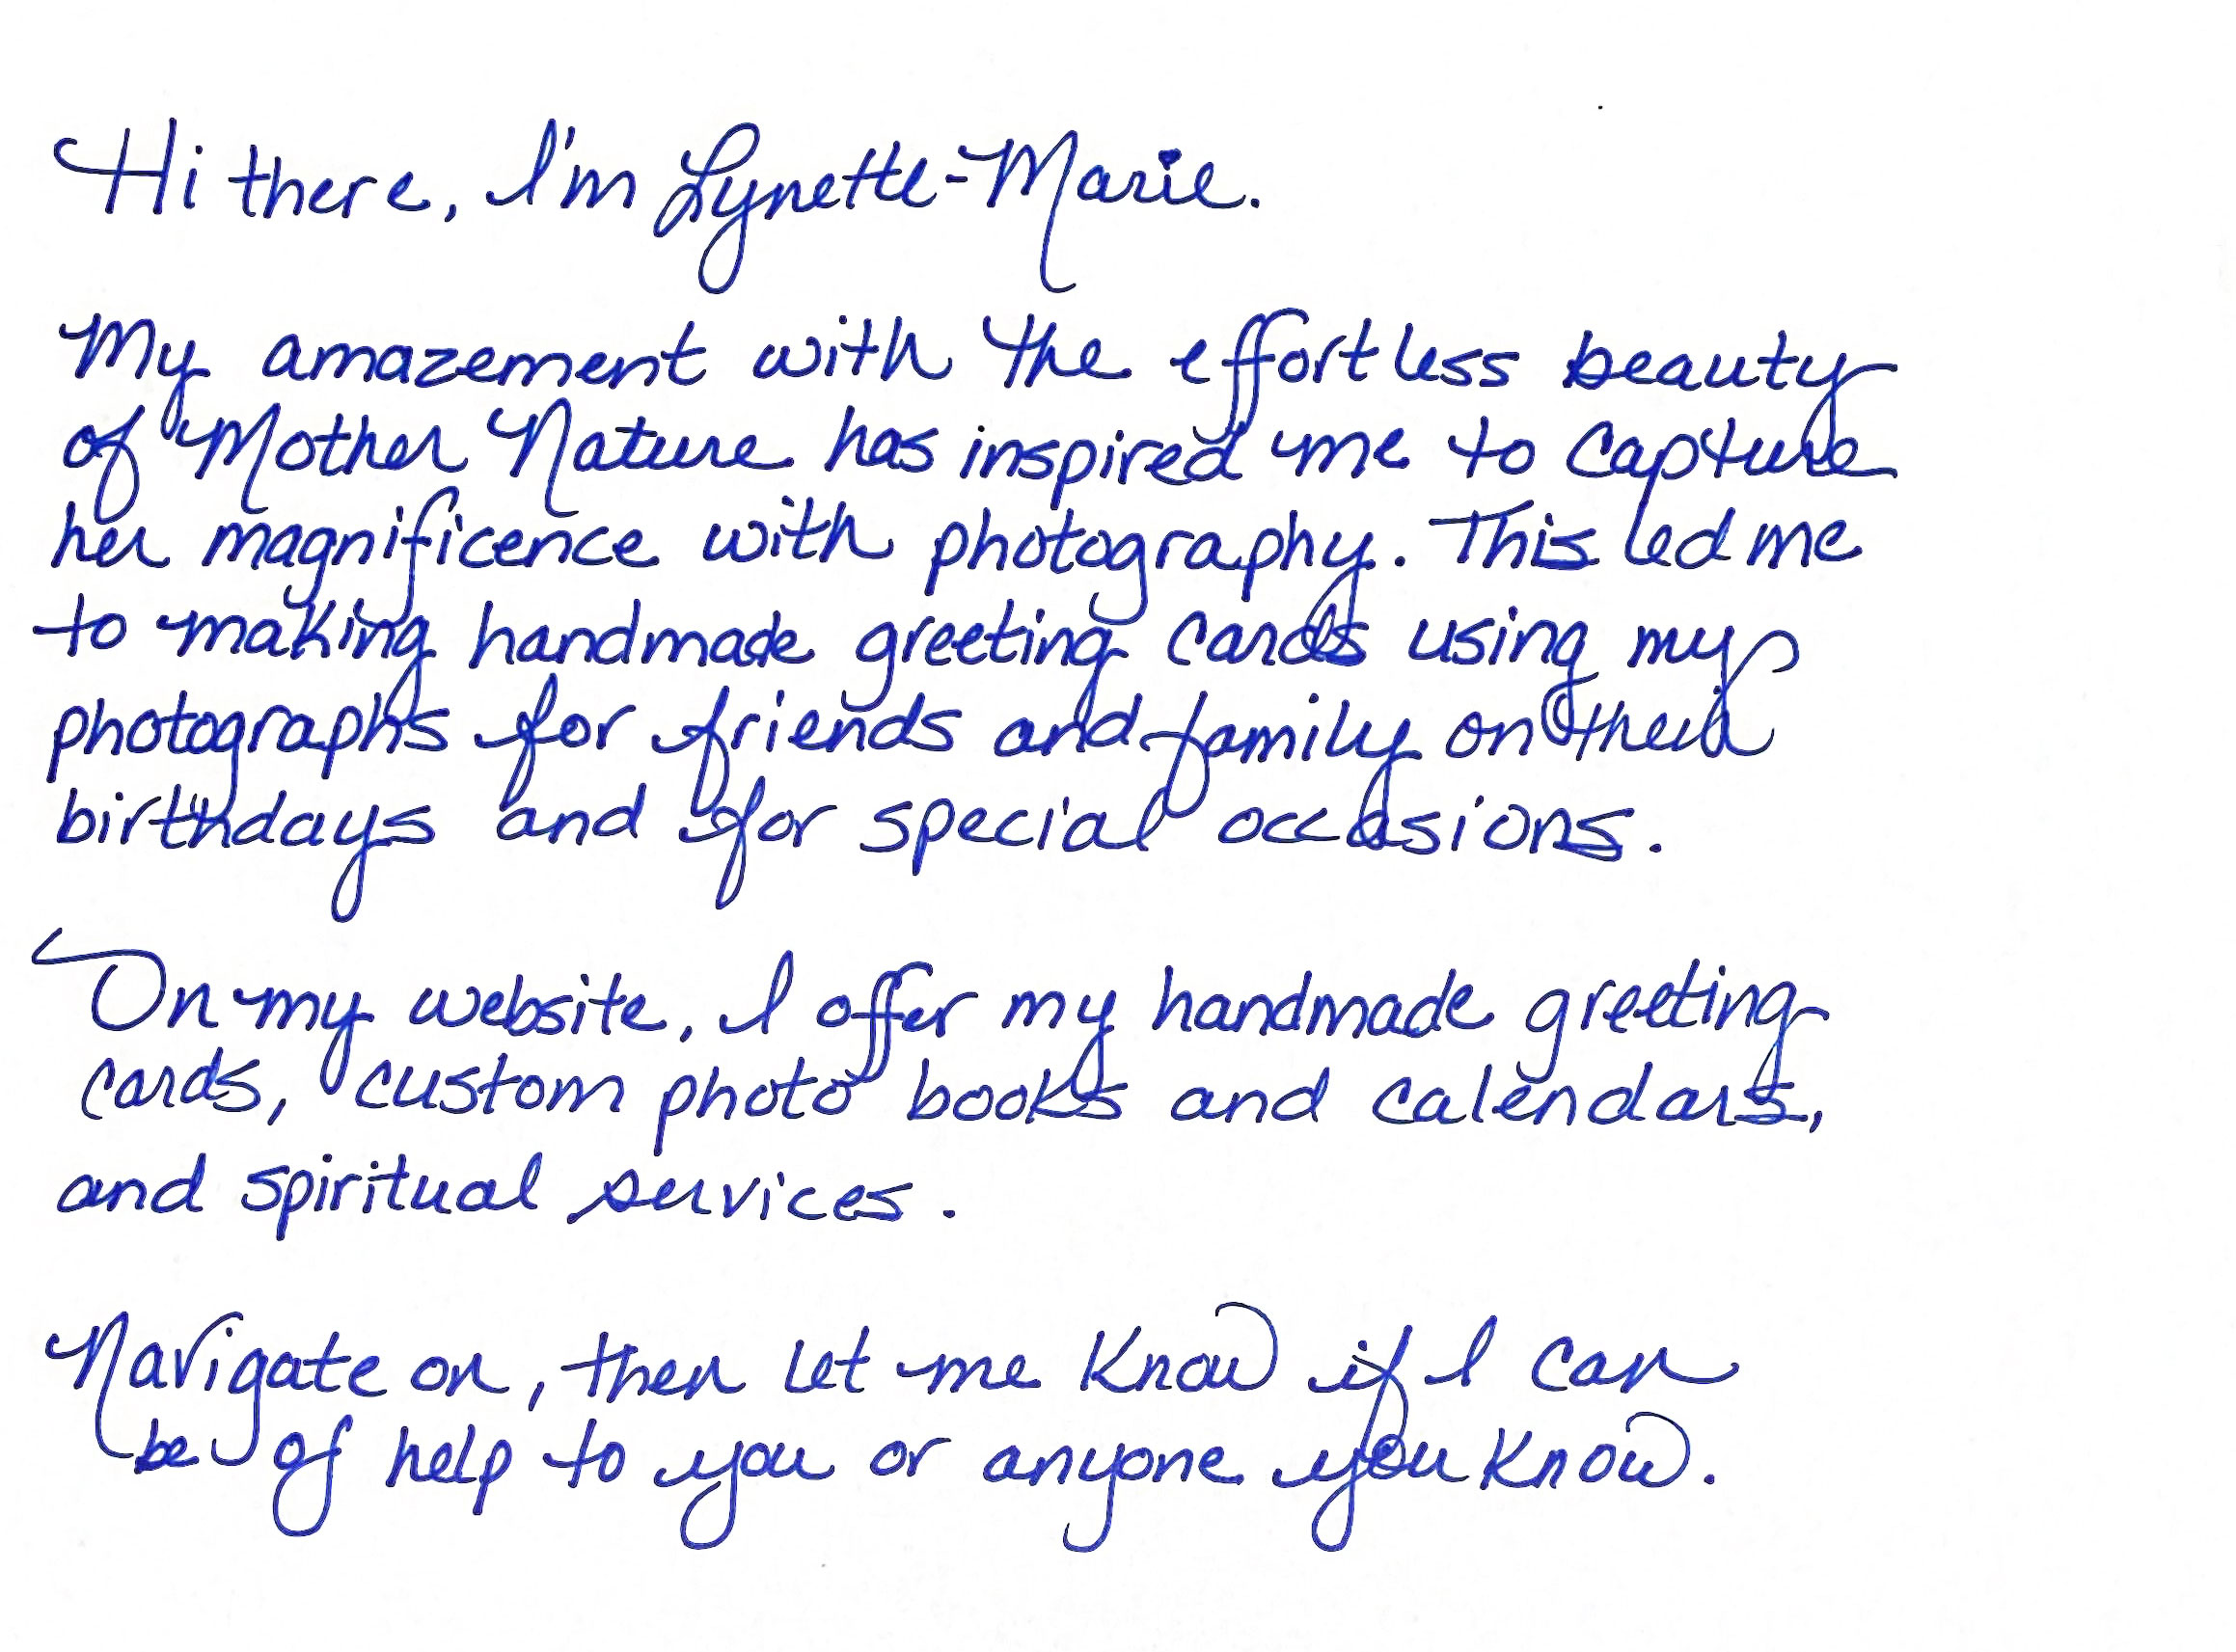 Hi there, I'm Lynette-Marie.
My amazement with the effortless beauty
of Mother Nature has inspired me to capture
her magnificence with photography. This led me
to making handmade greeting cards using my
photographs for friends and family on their
birthdays and for special occasions.
On my website, I offer my handmade greeting
cards, custom photo books and calendars,
and spiritual services.
Navigate on, then let me know if I can
be of help to you or anyone you know.